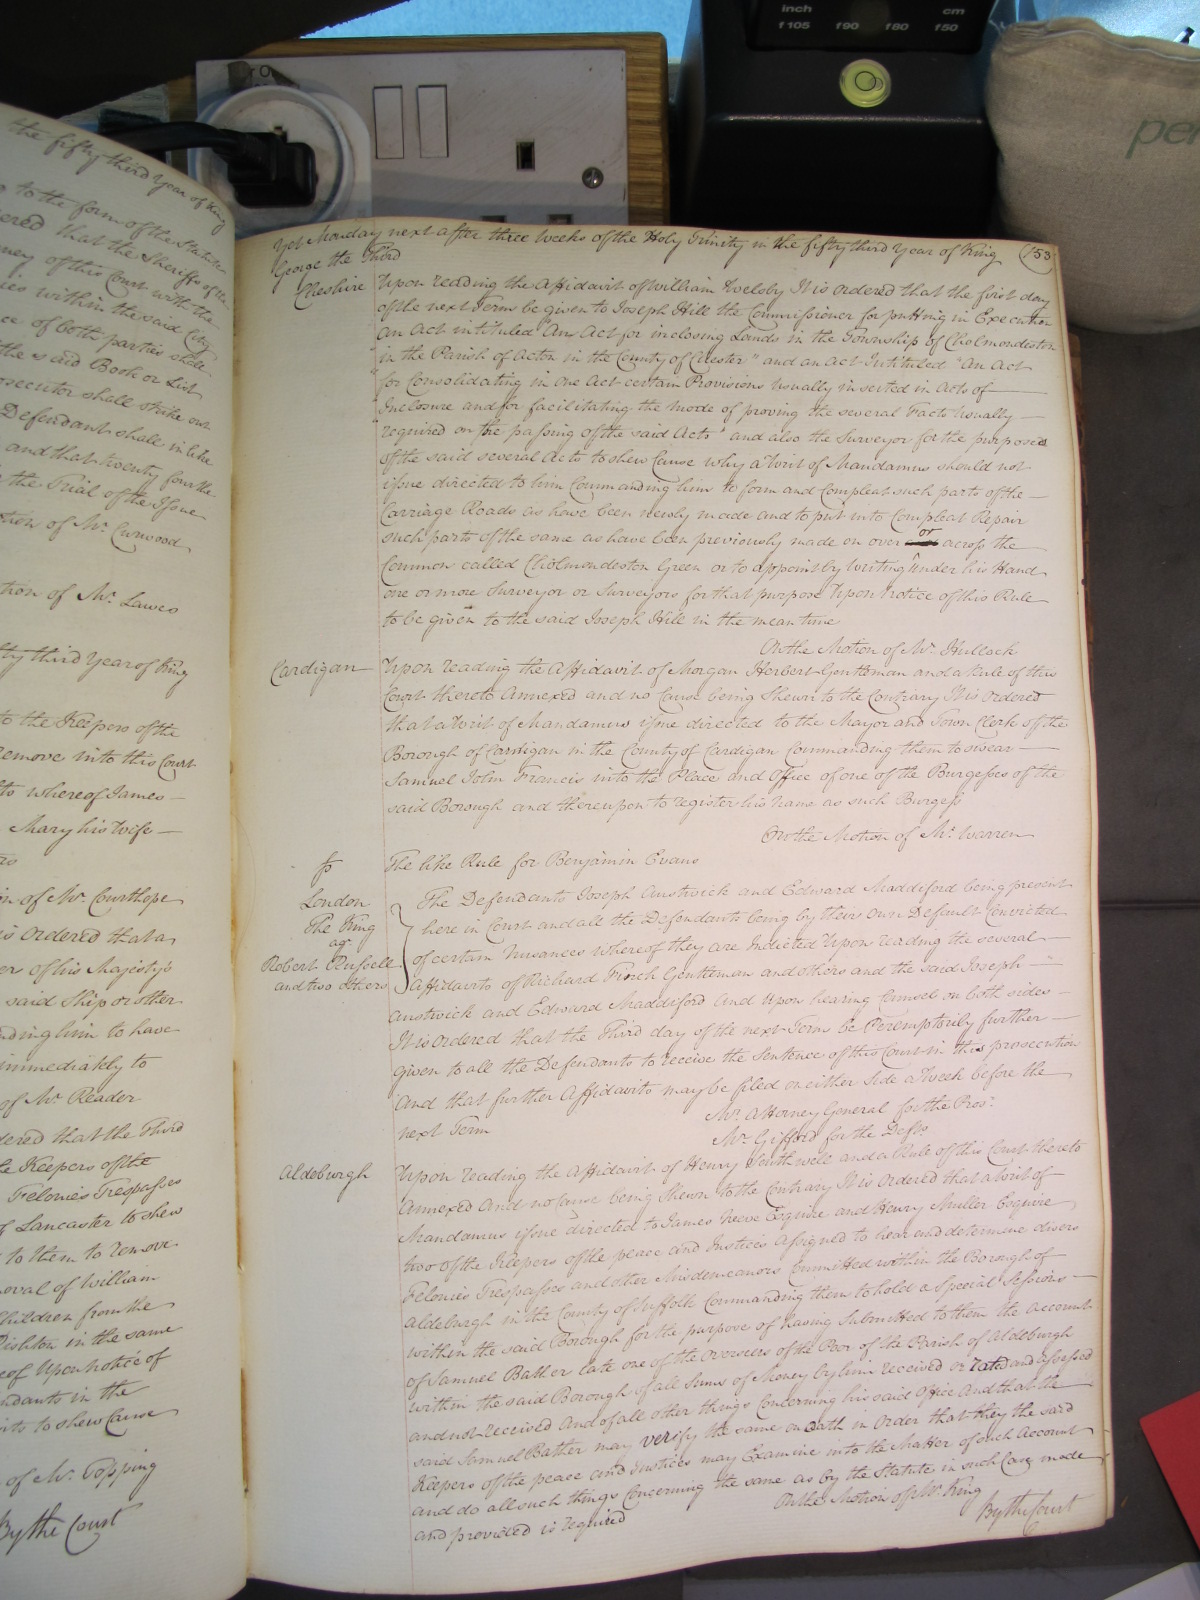 inch cm
f105 f90 f80 f50
per
the fifty third Year of King
to the form of the Statute
ered that the Sheriffs of the
ney of this Court with the
ies within the said City
ce of both parties shall
the said Book or List
osecutor shall strike out
Defendant shall in like
and that twenty four the
the Trial of the Issue
tion of Mr. Curwood
tion of Mr. Lawes
ty third Year of King
to the Keepers of the
remove into this Court
ts whereof James
Mary his Wife
n of Mr. Courthope
is Ordered that a
er of his Majesty's
said Ship or other
nding him to have
immediately to
of Mr. Reader
dered that the Third
he Keepers of the
Felonies Trespasses
of Lancaster to shew
to them to remove
oval of William
Children from the
Rishton in the same
eof Upon notice of
ndants in the
its to shew Cause
of Mr. Topping
By the Court
Yet Monday next after three Weeks of the Holy Trinity in the fifty third Year of King 153
George the Third
Cheshire Upon reading the Affidavit of William Welsby It is ordered that the first day
of the next Term be given to Joseph Hill the Commissioner for putting in Execution
an Act intituled "An Act for inclosing Lands in the Township of Cholmondeston
"in the Parish of Acton in the County of Chester" and an Act Intituled "An Act
"for Consolidating in one Act certain Provisions usually inserted in Acts of
"Inclosure and for facilitating the mode of proving the several Facts Usually
"required on the passing of the said Acts" and also the Surveyor for the purposes
of the said several Acts to shew Cause why a Writ of Mandamus should not
issue directed to him Commanding him to form and Compleat such parts of the
Carriage Roads as have been newly made and to put into Compleat Repair
such parts of the same as have been previously made on over or across the
Common called Cholmondeston Green or to appoint by Writing under his Hand
one or more Surveyor or Surveyors for that purpose Upon Notice of this Rule
to be given to the said Joseph Hill in the mean time
On the Motion of Mr. Hullock
Cardigan Upon reading the Affidavit of Morgan Herbert Gentleman and a Rule of this
Court thereto Annexed and no Cause being Shewn to the Contrary It is Ordered
that a Writ of Mandamus issue directed to the Mayor and Town Clerk of the
Borough of Cardigan in the County of Cardigan Commanding them to swear
Samuel John Francis into the Place and Office of one of the Burgesses of the
said Borough and thereupon to register his Name as such Burgess
On the Motion of Mr. Warren
The like Rule for Benjamin Evans
London
The King
agt.
Robert Russell
and two others
The Defendants Joseph Austwick and Edward Maddiford being present
here in Court and all the Defendants being by their Own Default Convicted
of certain Nusances whereof they are Indicted Upon reading the several
Affidavits of Richard Finch Gentleman and others and the said Joseph
Austwick and Edward Maddiford And Upon hearing Counsel on both sides
It is Ordered that the Third day of the next Term be Peremptorily further
given to all the Defendants to receive the Sentence of this Court in this prosecution
And that further Affidavits may be filed on either Side a Week before the
next Term
Mr. Attorney General for the Pros.
Mr. Gifford for the Defts.
Aldeburgh Upon reading the Affidavit of Henry Southwell and a Rule of this Court thereto
Annexed And no Cause being Shewn to the Contrary It is Ordered that a Writ of
Mandamus issue directed to James Neeve Esquire and Henry Muller Esquire
two of the Keepers of the peace and Justices Assigned to hear and determine divers
Felonies Trespasses and other Misdemeanors Committed within the Borough of
Aldeburgh in the County of Suffolk Commanding them to hold a Special Sessions
within the said Borough for the purpose of having Submitted to them the Account
of Samuel Bather late one of the Overseers of the Poor of the Parish of Aldeburgh
within the said Borough of all Sums of Money by him received or rated and assessed
and not received And of all other things Concerning his said Office And that the
said Samuel Bather may verify the same on Oath in Order that they the said
Keepers of the peace and Justices may Examine into the Matter of such Account
and do all such things Concerning the same as by the Statute in such Case made
and provided is required
On the Motion of Mr. King
By the Court